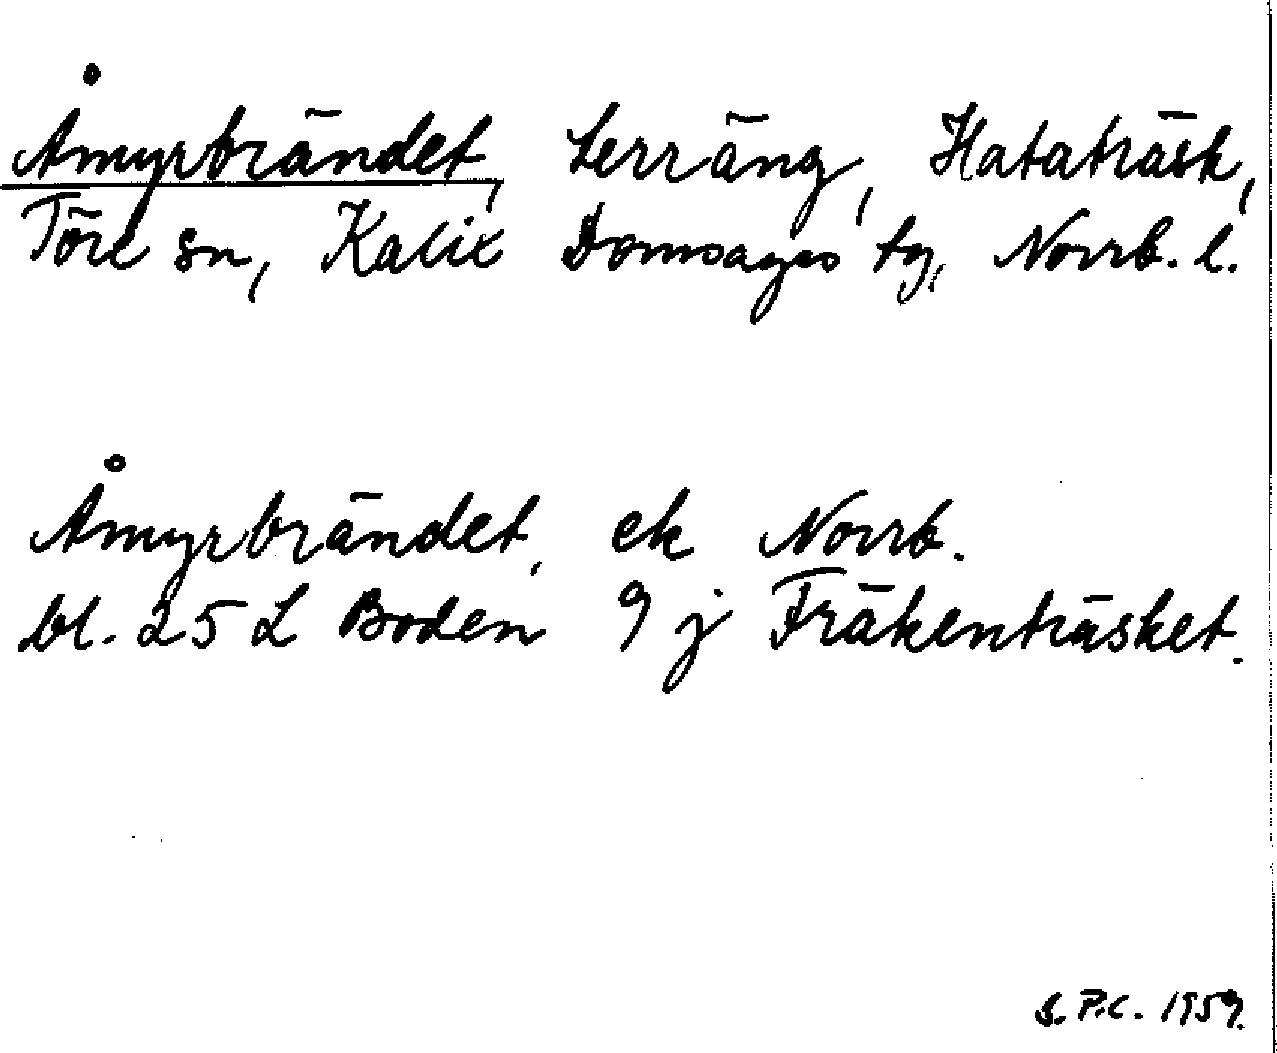 Åmyrbrändet, terräng, Hataträsk,
Töre sn, Kalix Domsagas tg, Norrb. l.
Åmyrbrändet, ek Norrb.
bl. 25 L Boden 9 j Fräkenträsket.
S.P.C. 1959.